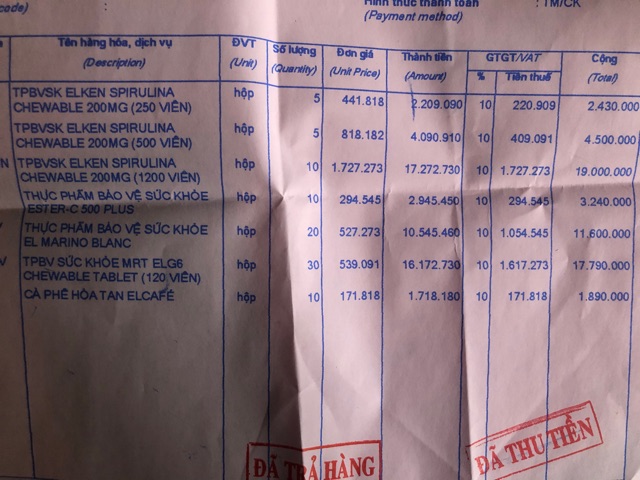 code) :
Hình thức thanh toán : TM/CK
(Payment method)
Tên hàng hóa, dịch vụ ĐVT Số lượng Đơn giá Thành tiền GTGT/VAT Cộng
(Description) (Unit) (Quantity) (Unit Price) (Amount) % Tiền thuế (Total)
TPBVSK ELKEN SPIRULINA hộp 5 441.818 2.209.090 10 220.909 2.430.000
CHEWABLE 200MG (250 VIÊN)
TPBVSK ELKEN SPIRULINA hộp 5 818.182 4.090.910 10 409.091 4.500.000
CHEWABLE 200MG (500 VIÊN)
N TPBVSK ELKEN SPIRULINA hộp 10 1.727.273 17.272.730 10 1.727.273 19.000.000
CHEWABLE 200MG (1200 VIÊN)
THỰC PHẨM BẢO VỆ SỨC KHỎE hộp 10 294.545 2.945.450 10 294.545 3.240.000
ESTER-C 500 PLUS
THỰC PHẨM BẢO VỆ SỨC KHỎE hộp 20 527.273 10.545.460 10 1.054.545 11.600.000
EL MARINO BLANC
V TPBV SỨC KHỎE MRT ELG6 hộp 30 539.091 16.172.730 10 1.617.273 17.790.000
CHEWABLE TABLET (120 VIÊN)
CÀ PHÊ HÒA TAN ELCAFÉ hộp 10 171.818 1.718.180 10 171.818 1.890.000
ĐÃ TRẢ HÀNG
ĐÃ THU TIỀN